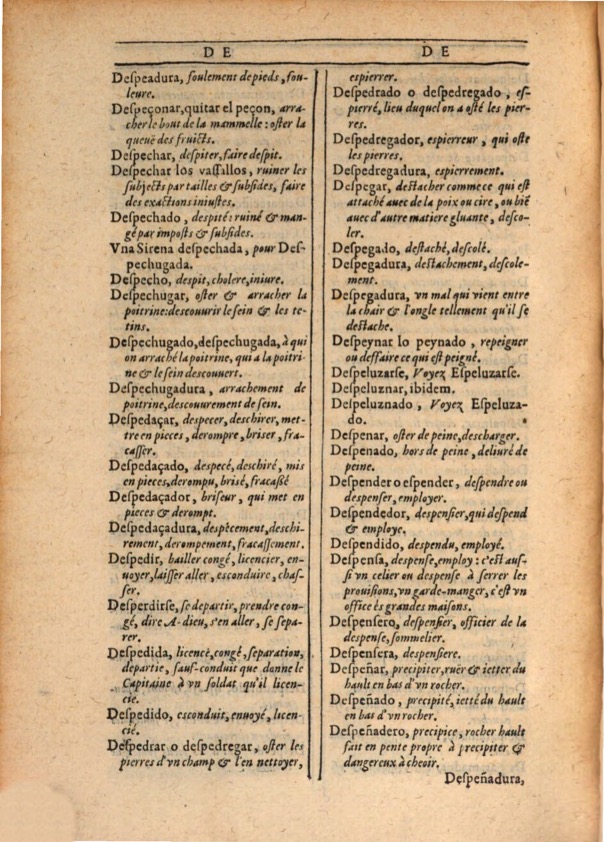 DE
Deſpeadura, foulement de pieds, fou-
leure.
Deſpeçonar, quitar el peçon, arra-
cher le bout de la mammelle: oſter la
queuë des fruicts.
Deſpechar, deſpiter, faire deſpit.
Deſpechar los vaſſallos, ruiner les
ſubjects par tailles & ſubſides, faire
des exactions iniuſtes.
Deſpechado, deſpité: ruiné & man-
gé par impoſts & ſubſides.
Vna Sirena deſpechada, pour Deſ-
pechugada.
Deſpecho, deſpit, cholere, iniure.
Deſpechugar, oſter & arracher la
poitrine: deſcouurir le ſein & les te-
tins.
Deſpechugado, deſpechugada, à qui
on arraché la poitrine, qui a la poitri-
ne & le ſein deſcouuert.
Deſpechugadura, arrachement de
poitrine, deſcouurement de ſein.
Deſpedaçar, deſpecer, deſchirer, met-
tre en pieces, derompre, briſer, fra-
caſſer.
Deſpedaçado, deſpecé, deſchiré, mis
en pieces, derompu, briſé, fracaſſé
Deſpedaçador, briſeur, qui met en
pieces & derompt.
Deſpedaçadura, deſpècement, deſchi-
rement, derompement, fracaſſement.
Deſpedir, bailler congé, licencier, en-
uoyer, laiſſer aller, esconduire, chaſ-
ſer.
Deſperdirſe, ſe departir, prendre con-
gé, dire A-dieu, s'en aller, ſe ſepa-
rer.
Deſpedida, licence, congé, ſeparation,
departie, ſauf-conduit que donne le
Capitaine à vn ſoldat qu'il licen-
cie.
Deſpedido, esconduit, enuoyé, licen-
cié.
Deſpedrar o deſpedregar, oſter les
pierres d'vn champ & l'en nettoyer,
DE
eſpierrer.
Deſpedrado o deſpedregado, eſ-
pierré, lieu duquel on a oſté les pier-
res.
Deſpedregador, eſpierreur, qui oſte
les pierres.
Deſpedregadura, eſpierrement.
Deſpegar, deſtacher comme ce qui eſt
attaché auec de la poix ou cire, ou biẽ
auec d'autre matiere gluante, deſco-
ler.
Deſpegado, deſtaché, deſcolé.
Deſpegadura, deſtachement, deſcole-
ment.
Deſpegadura, vn mal qui vient entre
la chair & l'ongle tellement qu'il ſe
deſtache.
Deſpeynar lo peynado, repeigner
ou deffaire ce qui eſt peigné.
Deſpeluzarſe, Voyez Eſpeluzarſe.
Deſpeluznar, ibidem.
Deſpeluznado, Voyez Eſpeluza-
do.
Deſpenar, oſter de peine, deſcharger.
Deſpenado, hors de peine, deliuré de
peine.
Deſpender o eſpender, deſpendre ou
deſpenſer, employer.
Deſpendedor, deſpenſier, qui deſpend
& employe.
Deſpendido, deſpendu, employé.
Deſpenſa, deſpenſe, employ: c'eſt auſ-
ſi vn celier ou deſpenſe à ſerrer les
prouiſions, vn garde-manger, c'eſt vn
office ès grandes maiſons.
Deſpenſero, deſpenſier, officier de la
deſpenſe, ſommelier.
Deſpenſera, deſpenſiere.
Deſpeñar, precipiter, ruër & ietter du
hault en bas d'vn rocher.
Deſpeñado, precipité, ietté du hault
en bas d'vn rocher.
Deſpeñadero, precipice, rocher hault
fait en pente propre à precipiter &
dangereux à cheoir.
Deſpeñadura,